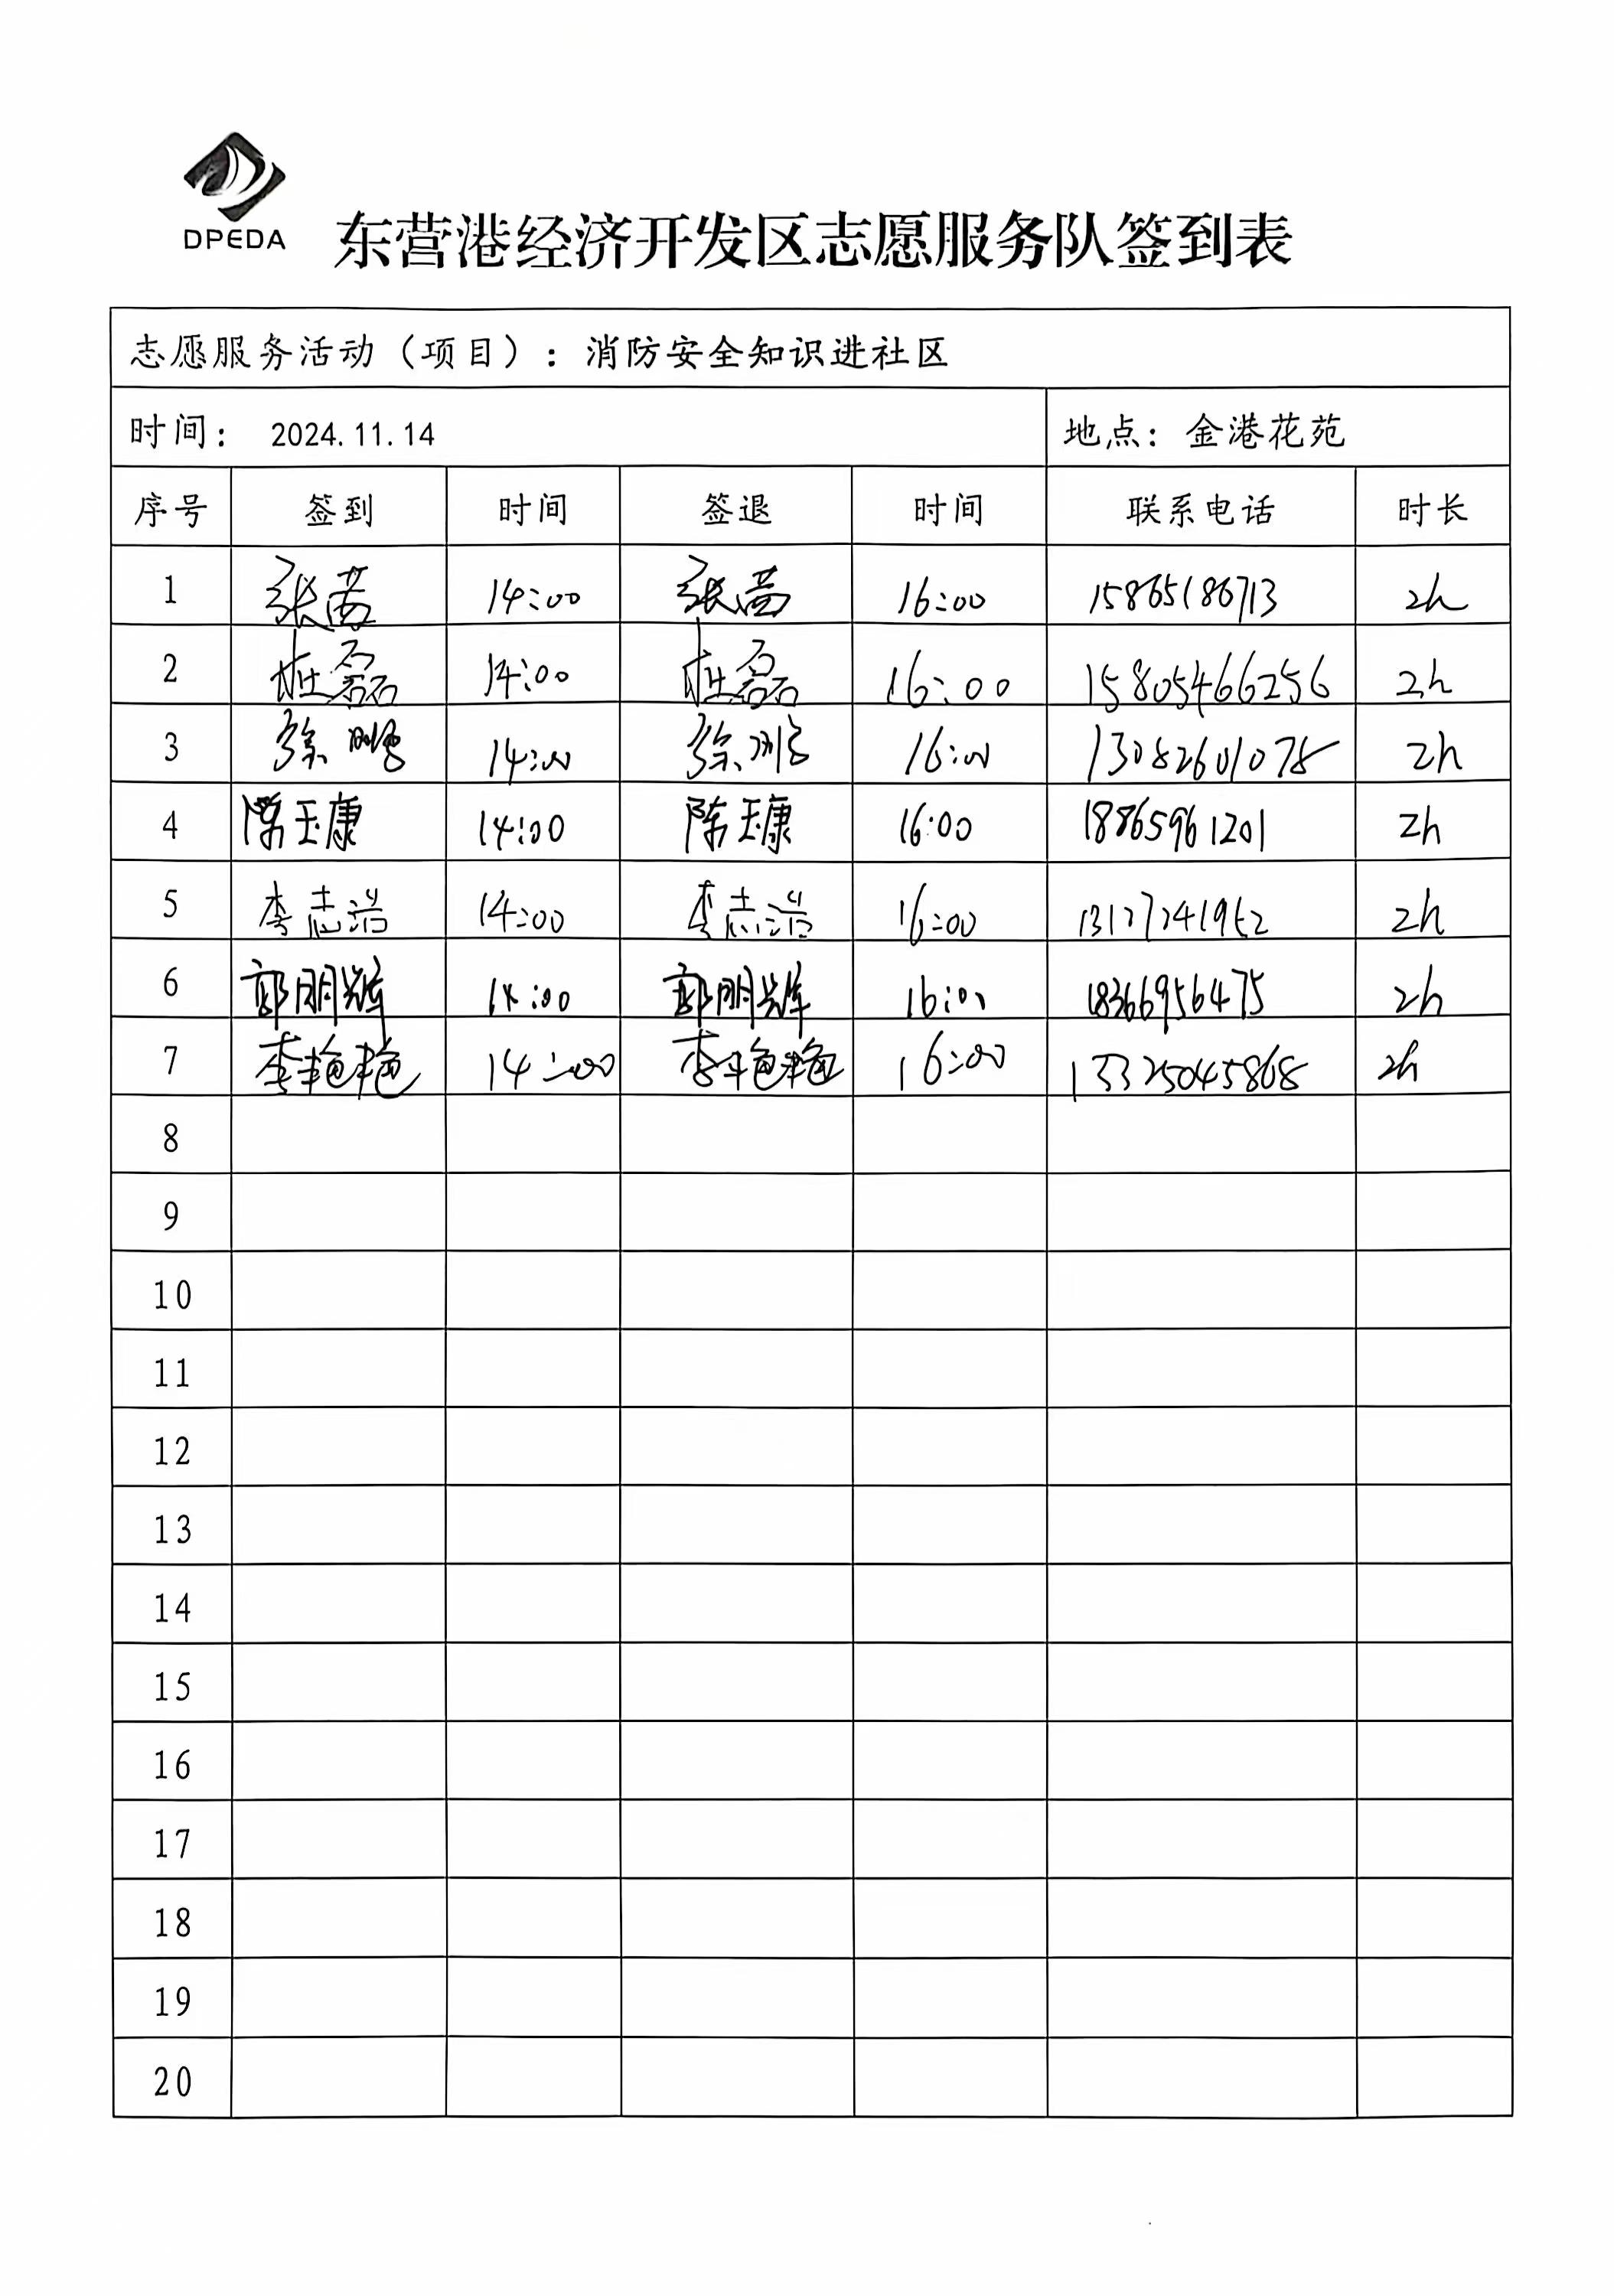 DPEDA
东营港经济开发区志愿服务队签到表
志愿服务活动（项目）：消防安全知识进社区
时间： 2024.11.14 地点：金港花苑
序号 签到 时间 签退 时间 联系电话 时长
1 张茜 14:00 张茜 16:00 15865186713 2h
2 桂磊 14:00 桂磊 16:00 15805466256 2h
3 徐鹏 14:00 徐鹏 16:00 13082601078 2h
4 陈玉康 14:00 陈玉康 16:00 18865961201 2h
5 李志浩 14:00 李志浩 16:00 2h
6 郭明辉 14:00 郭明辉 16:00 18366956475 2h
7 李艳艳 14:00 李艳艳 16:00 13325045868 2h
8
9
10
11
12
13
14
15
16
17
18
19
20